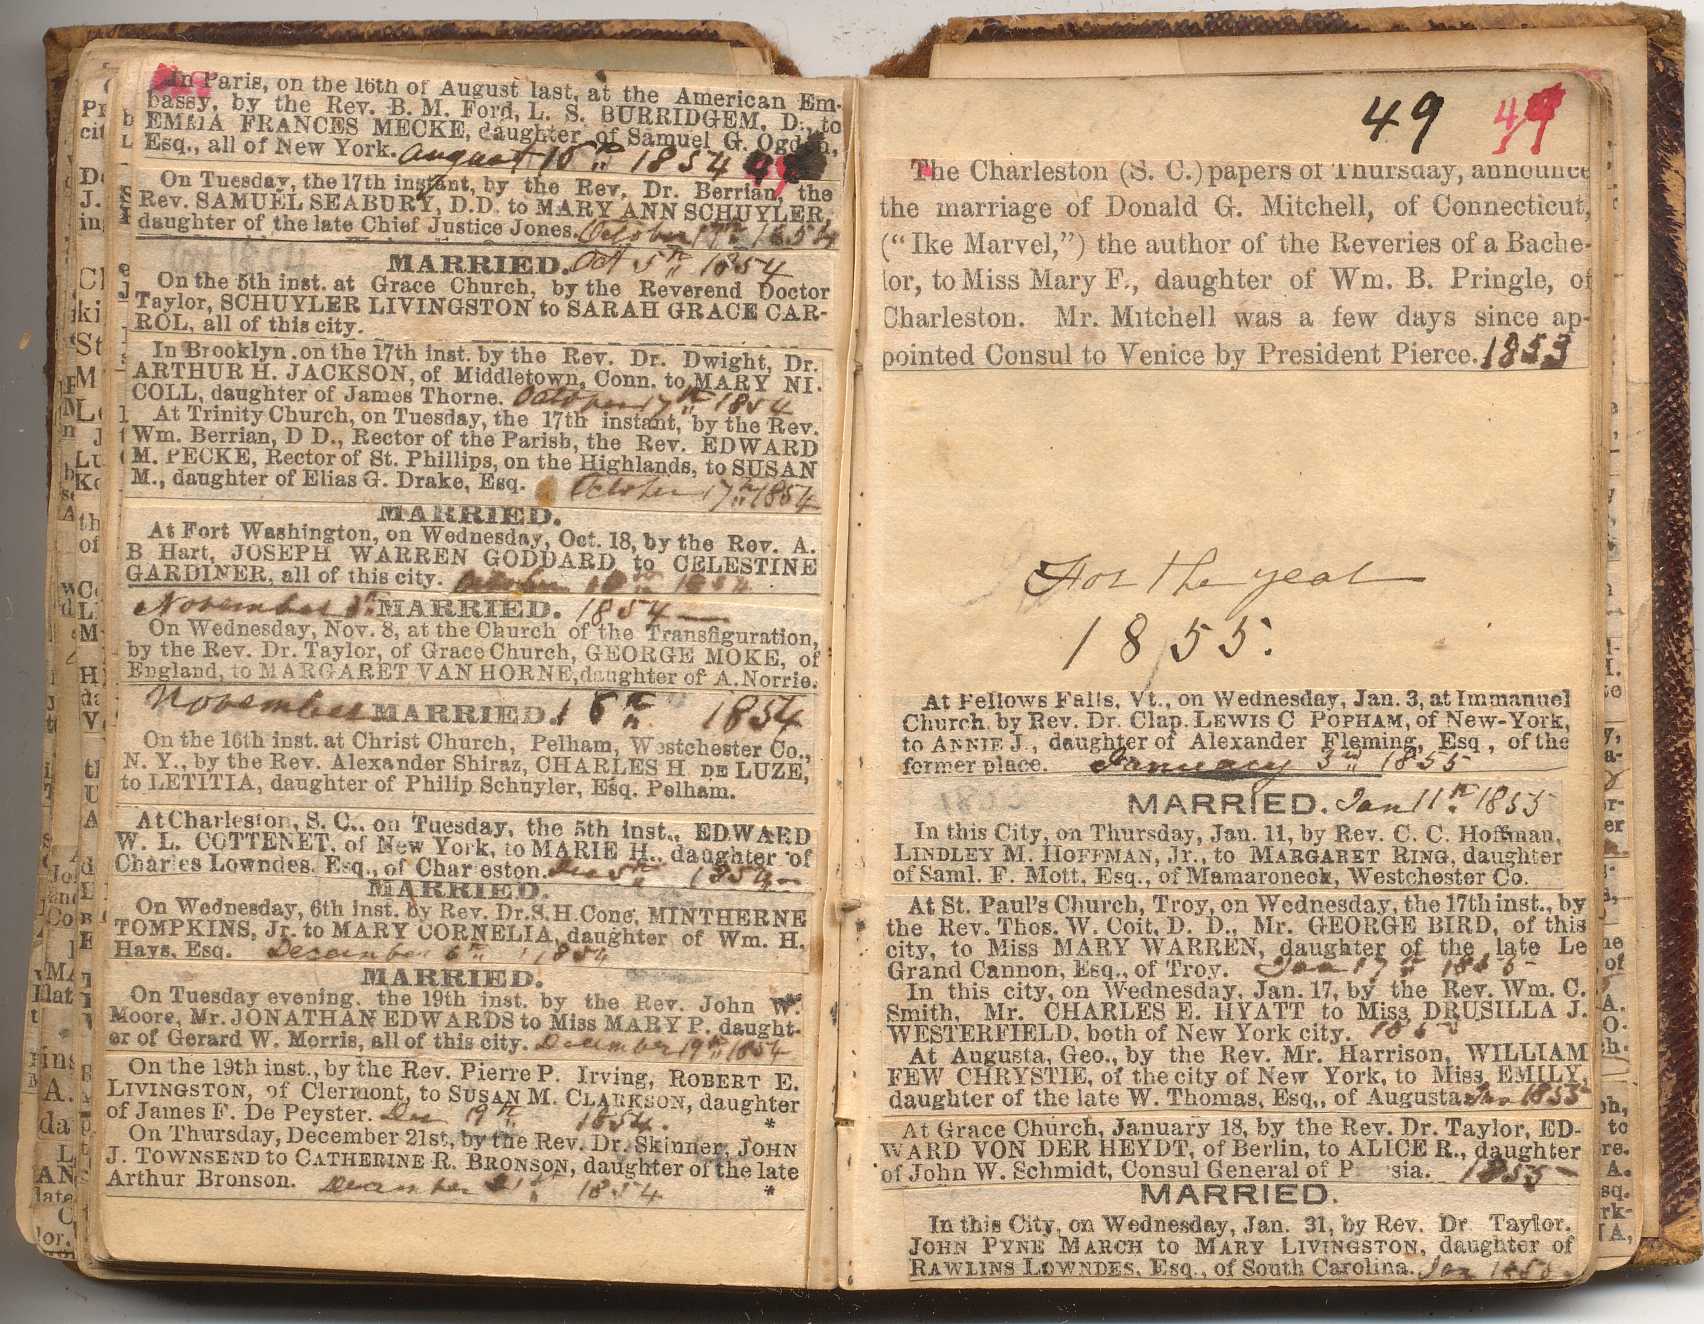 In Paris, on the 16th of August last, at the American Em-
bassy, by the Rev. B. M. Ford, L. S. BURRIDGEM. D., to
EMMA FRANCES MECKE, daughter of Samuel G. Ogden,
Esq., all of New York. August 16th 1854
On Tuesday, the 17th instant, by the Rev. Dr. Berrian, the
Rev. SAMUEL SEABURY, D.D. to MARY ANN SCHUYLER,
daughter of the late Chief Justice Jones. October 17th 1854
MARRIED. Oct 5th 1854
On the 5th inst. at Grace Church, by the Reverend Doctor
Taylor, SCHUYLER LIVINGSTON to SARAH GRACE CAR-
ROL, all of this city.
In Brooklyn. on the 17th inst. by the Rev. Dr. Dwight, Dr.
ARTHUR H. JACKSON, of Middletown, Conn. to MARY NI-
COLL, daughter of James Thorne. October 17th 1854
At Trinity Church, on Tuesday, the 17th instant, by the Rev.
Wm. Berrian, D D., Rector of the Parish, the Rev. EDWARD
M. PECKE, Rector of St. Phillips, on the Highlands, to SUSAN
M., daughter of Elias G. Drake, Esq. October 17th 1854
MARRIED.
At Fort Washington, on Wednesday, Oct. 18, by the Rev. A.
B Hart, JOSEPH WARREN GODDARD to CELESTINE
GARDINER, all of this city. October 18th 1854
November 8th MARRIED. 1854
On Wednesday, Nov. 8, at the Church of the Transfiguration,
by the Rev. Dr. Taylor, of Grace Church, GEORGE MOKE, of
England, to MARGARET VAN HORNE, daughter of A. Norrie.
November MARRIED. 16th 1854
On the 16th inst. at Christ Church, Pelham, Westchester Co.,
N. Y., by the Rev. Alexander Shiraz, CHARLES H. DE LUZE,
to LETITIA, daughter of Philip Schuyler, Esq. Pelham.
At Charleston, S. C., on Tuesday, the 5th inst., EDWARD
W. L. COTTENET, of New York, to MARIE H., daughter of
Charles Lowndes, Esq., of Charleston. Dec 5th 1854
MARRIED.
On Wednesday, 6th inst. by Rev. Dr. S. H. Cone, MINTHERNE
TOMPKINS, Jr. to MARY CORNELIA, daughter of Wm. H.
Hays, Esq. December 6th 1854
MARRIED.
On Tuesday evening, the 19th inst. by the Rev. John W.
Moore, Mr. JONATHAN EDWARDS to Miss MARY P. daught-
er of Gerard W. Morris, all of this city. December 19th 1854
On the 19th inst., by the Rev. Pierre P. Irving, ROBERT E.
LIVINGSTON, of Clermont, to SUSAN M. CLARKSON, daughter
of James F. De Peyster. Dec 19th 1854. *
On Thursday, December 21st, by the Rev. Dr. Skinner, JOHN
J. TOWNSEND to CATHERINE R. BRONSON, daughter of the late
Arthur Bronson. December 21st 1854 *
49 49
The Charleston (S. C.) papers of Thursday, announce
the marriage of Donald G. Mitchell, of Connecticut,
("Ike Marvel,") the author of the Reveries of a Bache-
lor, to Miss Mary F., daughter of Wm. B. Pringle, of
Charleston. Mr. Mitchell was a few days since ap-
pointed Consul to Venice by President Pierce. 1853
For the year
1855.
At Fellows Falls, Vt., on Wednesday, Jan. 3, at Immanuel
Church, by Rev. Dr. Clap. LEWIS C POPHAM, of New-York,
to ANNIE J., daughter of Alexander Fleming, Esq, of the
former place. January 3rd 1855
MARRIED. Jan 11th 1855
In this City, on Thursday, Jan. 11, by Rev. C. C. Hoffman,
LINDLEY M. HOFFMAN, Jr., to MARGARET RING, daughter
of Saml. F. Mott, Esq., of Mamaroneck, Westchester Co.
At St. Paul's Church, Troy, on Wednesday, the 17th inst., by
the Rev. Thos. W. Coit, D. D., Mr. GEORGE BIRD, of this
city, to Miss MARY WARREN, daughter of the late Le
Grand Cannon, Esq., of Troy. Jan 17th 1855
In this city, on Wednesday, Jan. 17, by the Rev. Wm. C.
Smith, Mr. CHARLES E. HYATT to Miss DRUSILLA J.
WESTERFIELD, both of New York city. 1855
At Augusta, Geo., by the Rev. Mr. Harrison, WILLIAM
FEW CHRYSTIE, of the city of New York, to Miss EMILY,
daughter of the late W. Thomas, Esq., of Augusta. Jan 1855
At Grace Church, January 18, by the Rev. Dr. Taylor, ED-
WARD VON DER HEYDT, of Berlin, to ALICE R., daughter
of John W. Schmidt, Consul General of P sia. 1855
MARRIED.
In this City, on Wednesday, Jan. 31, by Rev. Dr Taylor.
JOHN PYNE MARCH to MARY LIVINGSTON, daughter of
RAWLINS LOWNDES, Esq., of South Carolina. Jan 1855